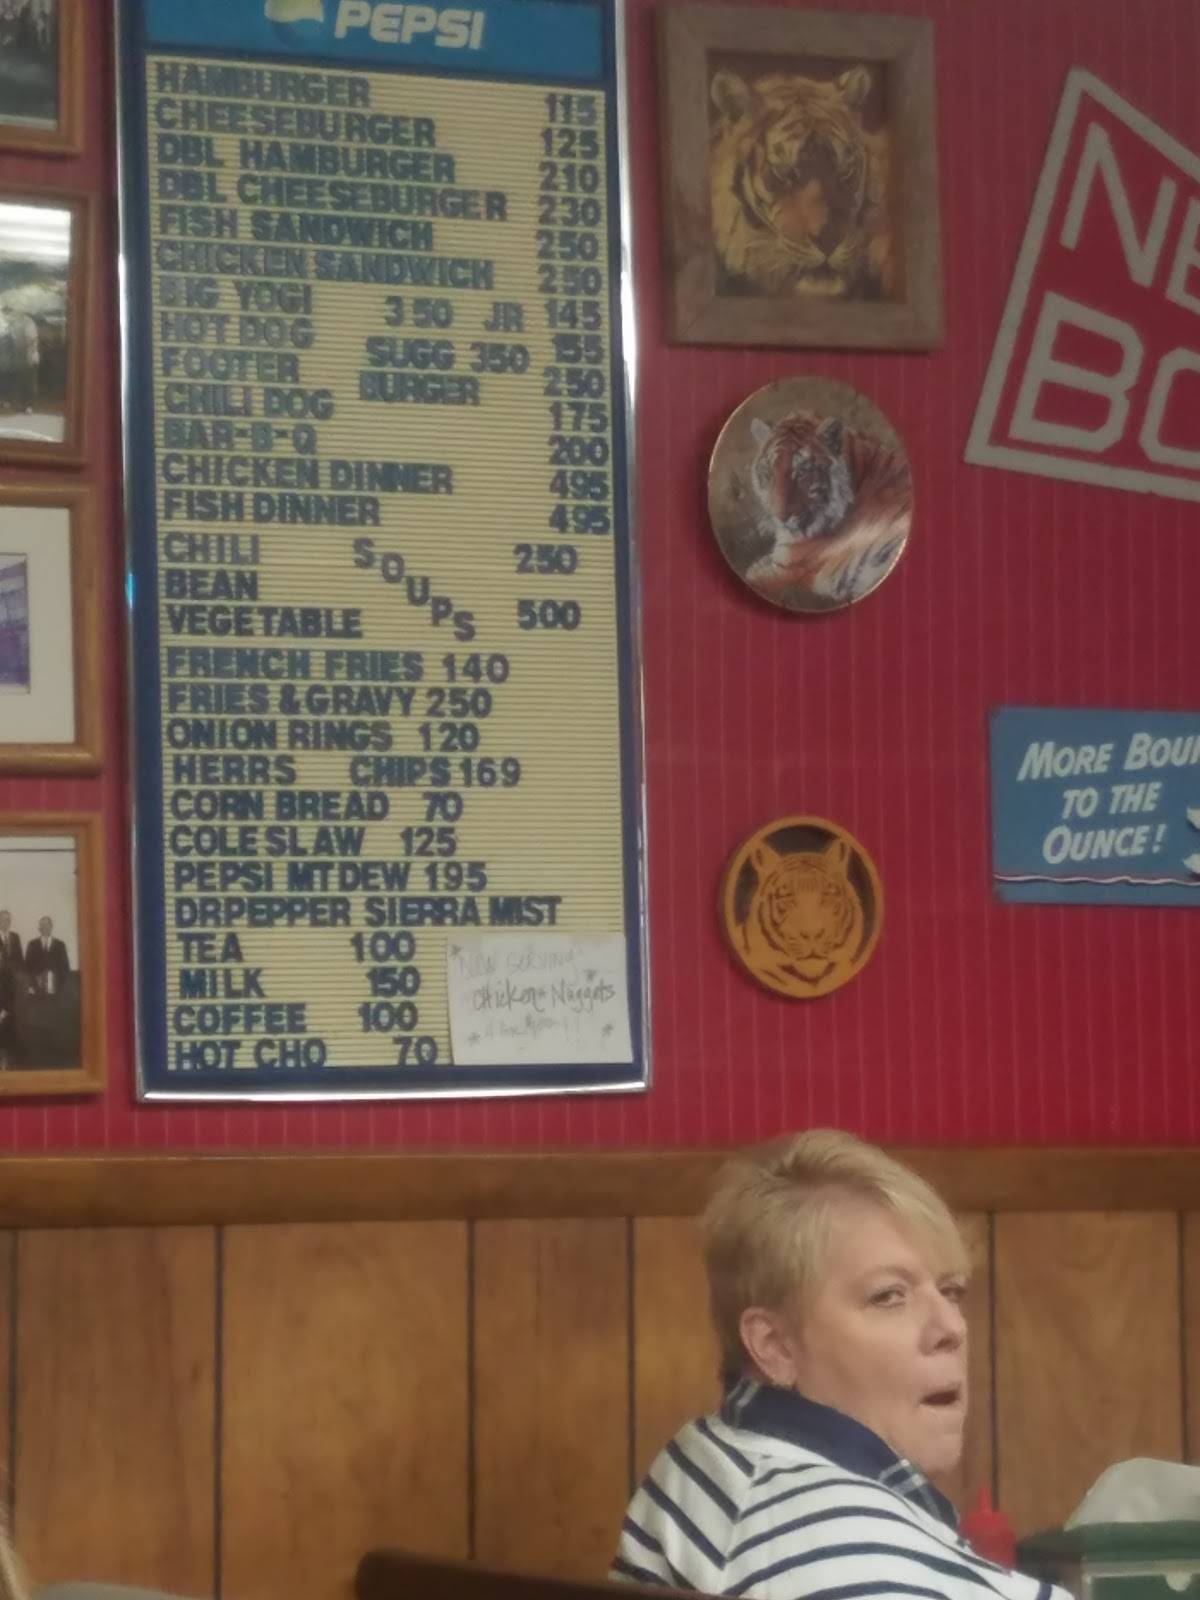 PEPSI
HAMBURGER 115
CHEESEBURGER 125
DBL HAMBURGER 210
DBL CHEESEBURGER 230
FISH SANDWICH 250
CHICKEN SANDWICH 250
BIG YOGI 350 JR 145
HOT DOG 155
FOOTER SUGG 350 250
BURGER
CHILI DOG 175
BAR-B-Q 200
CHICKEN DINNER 495
FISH DINNER 495
CHILI SOUPS 250
BEAN
VEGETABLE 500
FRENCH FRIES 140
FRIES & GRAVY 250
ONION RINGS 120
HERRS CHIPS 169
CORN BREAD 70
COLE SLAW 125
PEPSI MT DEW 195
DRPEPPER SIERRA MIST
TEA 100
MILK 150
COFFEE 100
HOT CHO 70
NOW SERVING
Chicken Nuggets
NE
BO
MORE BOUN
TO THE
OUNCE!